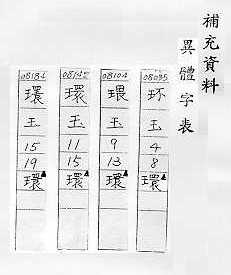 補充資料
異體字表
08035
环
玉
4
8
環▲
08104
玉
9
13
環▲
08142
環
玉
11
15
環▲
環
玉
15
19
環▲